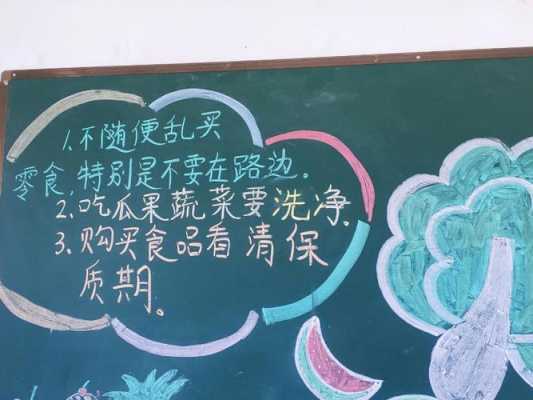 1.不随便乱买
零食,特别是不要在路边。
2.吃瓜果蔬菜要洗净.
3.购买食品看清保
质期。